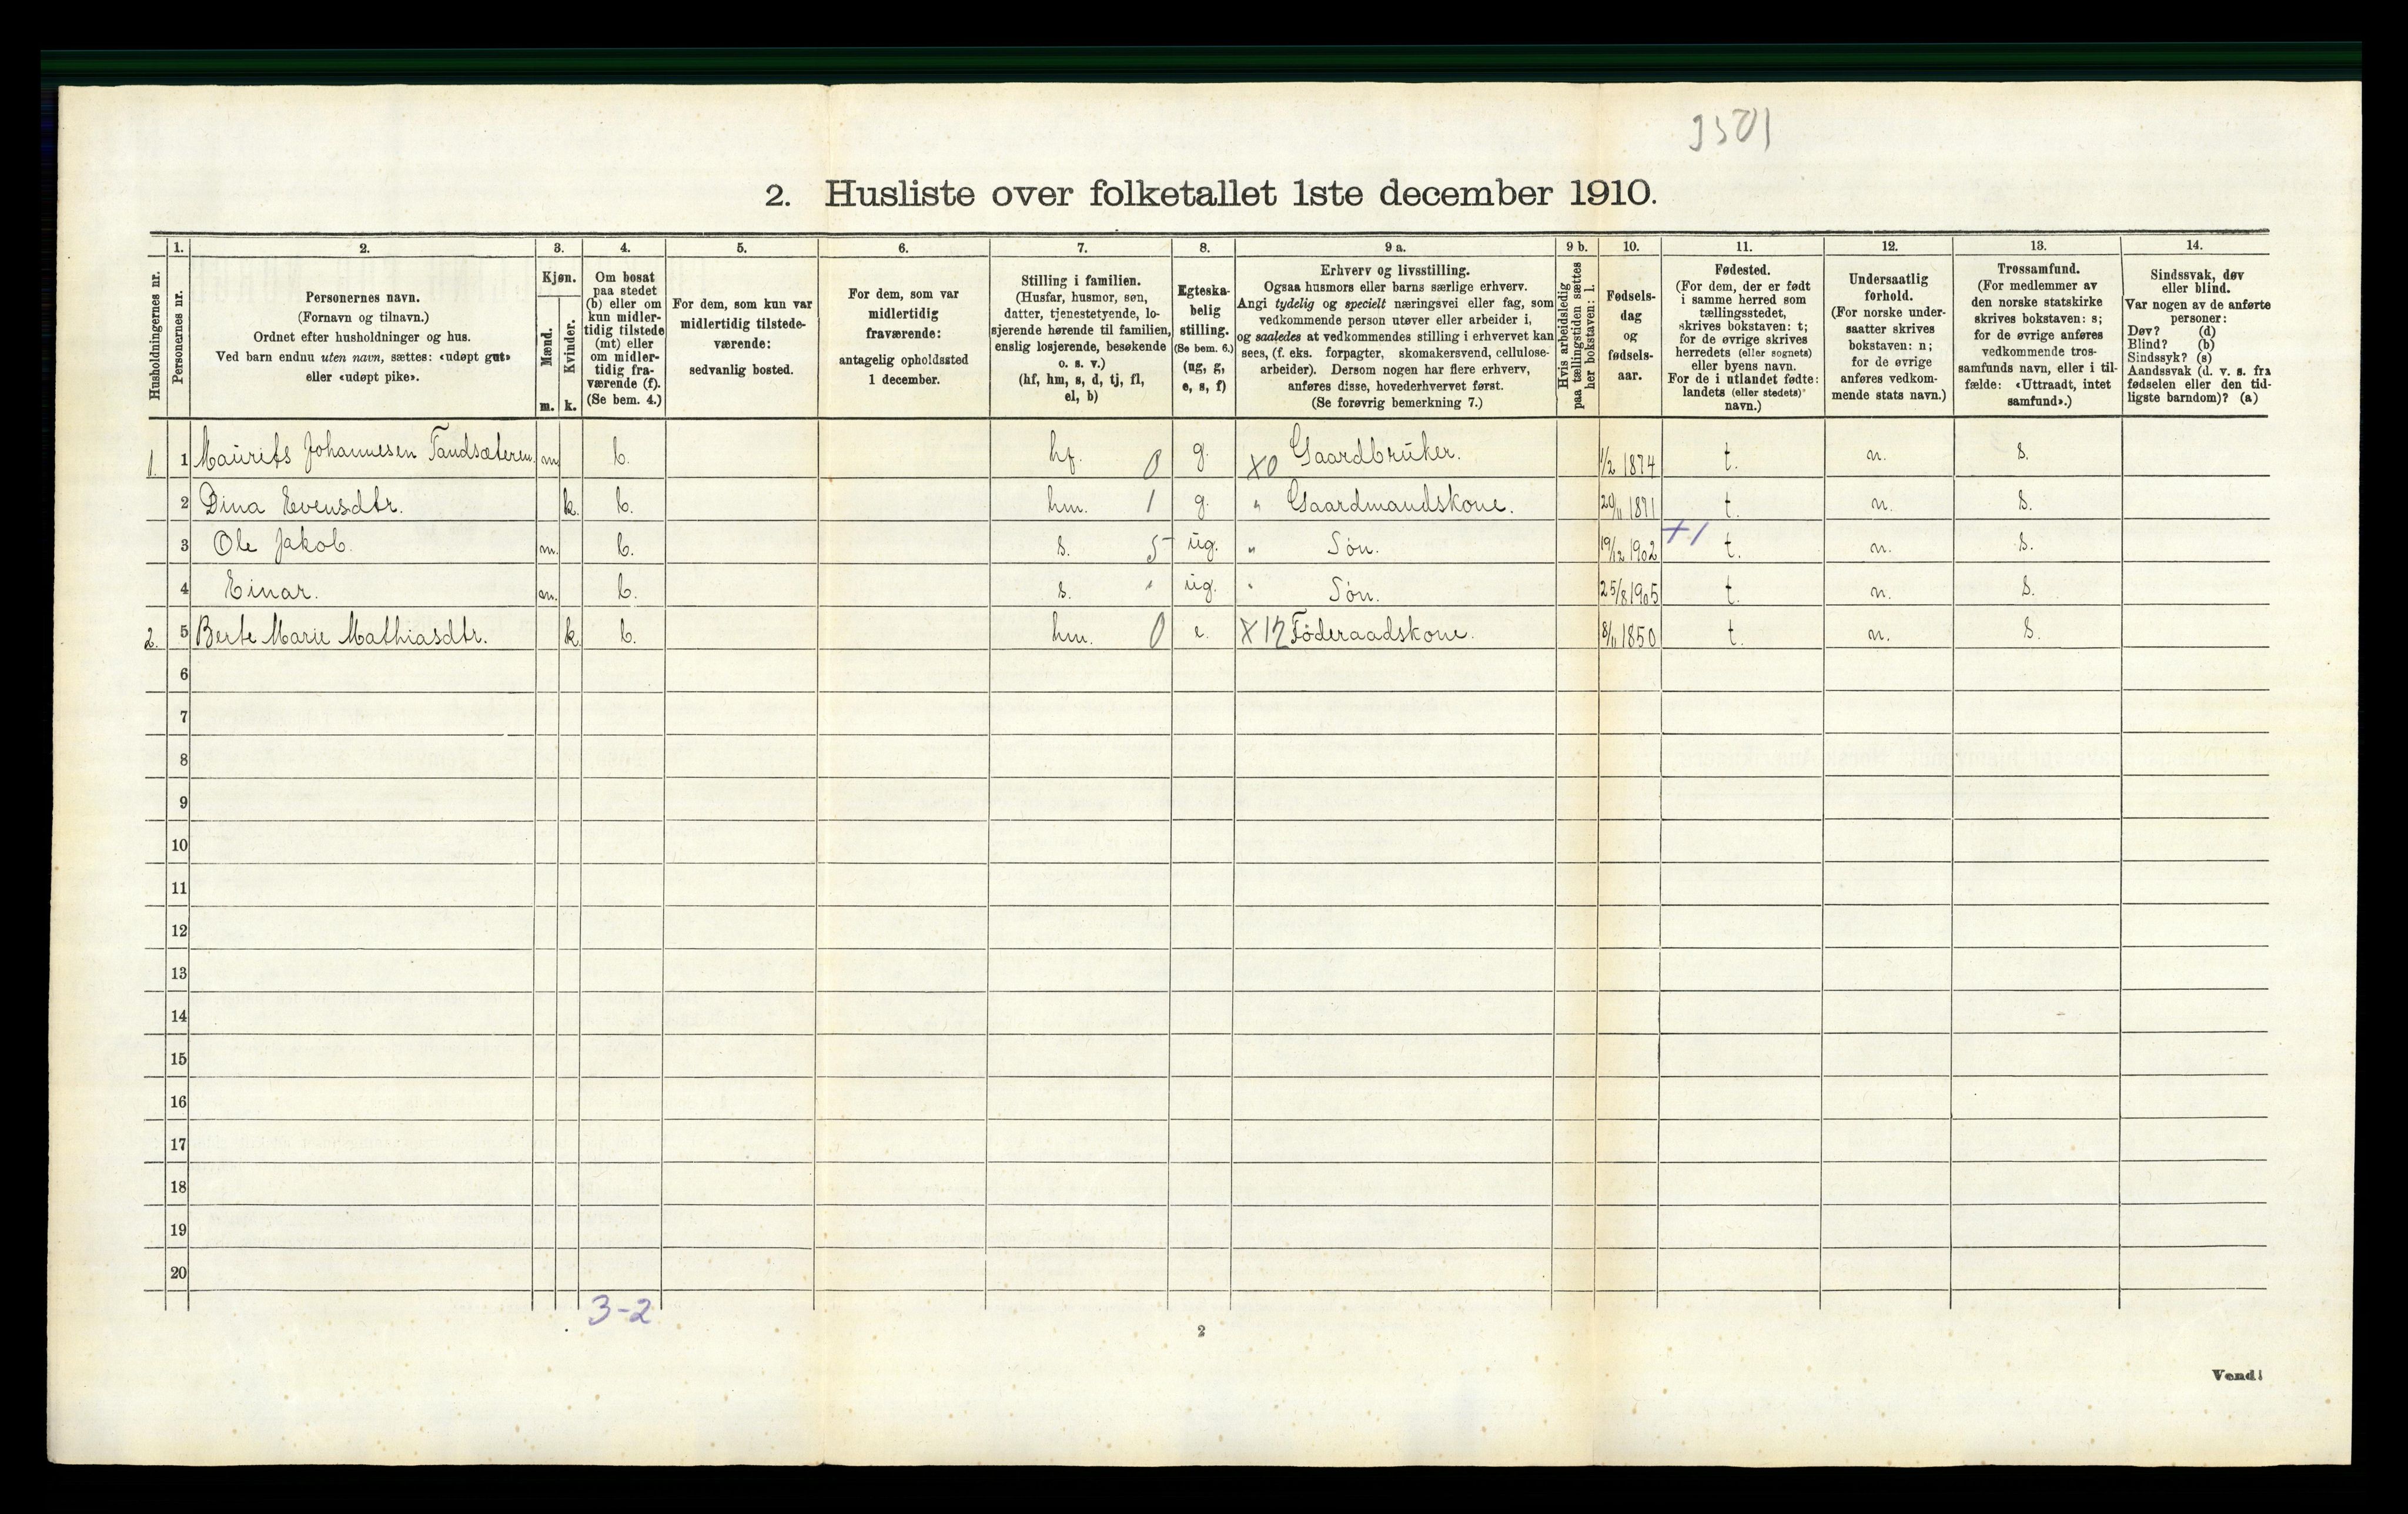 3501
2. Husliste over folketallet 1ste december 1910.
Husholdningernes nr.
1. Personernes nr.
2.
Personernes navn.
(Fornavn og tilnavn.)
Ordnet efter husholdninger og hus.
Ved barn endnu uten navn, sættes: «udøpt gut»
eller «udøpt pike».
3.
Kjøn.
Mænd. m.
Kvinder. k.
4.
Om bosat
paa stedet
(b) eller om
kun midler-
tidig tilstede
(mt) eller
om midler-
tidig fra-
værende (f).
(Se bem. 4.)
5.
For dem, som kun var
midlertidig tilstede-
værende:
sedvanlig bosted.
6.
For dem, som var
midlertidig
fraværende:
antagelig opholdssted
1 december.
7.
Stilling i familien.
(Husfar, husmor, søn,
datter, tjenestetyende, lo-
sjerende hørende til familien,
enslig losjerende, besøkende
o. s. v.)
(hf, hm, s, d, tj, fl,
el, b)
8.
Egteska-
belig
stilling.
(Se bem. 6.)
(ug, g,
e, s, f)
9 a.
Erhverv og livsstilling.
Ogsaa husmors eller barns særlige erhverv.
Angi tydelig og specielt næringsvei eller fag, som
vedkommende person utøver eller arbeider i,
og saaledes at vedkommendes stilling i erhvervet kan
sees, (f. eks. forpagter, skomakersvend, cellulose-
arbeider). Dersom nogen har flere erhverv,
anføres disse, hovederhvervet først.
(Se forøvrig bemerkning 7.)
9 b.
Hvis arbeidsledig
paa tællingstiden sættes
her bokstaven: l.
10.
Fødsels-
dag
og
fødsels-
aar.
11.
Fødested.
(For dem, der er født
i samme herred som
tællingsstedet,
skrives bokstaven: t;
for de øvrige skrives
herredets (eller sognets)
eller byens navn.
For de i utlandet fødte:
landets (eller stedets)
navn.)
12.
Undersaatlig
forhold.
(For norske under-
saatter skrives
bokstaven: n;
for de øvrige
anføres vedkom-
mende stats navn.)
13.
Trossamfund.
(For medlemmer av
den norske statskirke
skrives bokstaven: s;
for de øvrige anføres
vedkommende tros-
samfunds navn, eller i til-
fælde: «Uttraadt, intet
samfund».)
14.
Sindssvak, døv
eller blind.
Var nogen av de anførte
personer:
Døv? (d)
Blind? (b)
Sindssyk? (s)
Aandssvak (d. v. s. fra
fødselen eller den tid-
ligste barndom)? (a)
1. 1 Maurits Johannesen Tandsæteren. m. b. hf. 0 g. X0 Gaardbruker. 1/2 1874 t. n. s.
2 Dina Evensdtr. k. b. hm. 1 g. " Gaardmandskone. 20/11 1871 t. n. s.
3 Ole Jakob. m. b. s. 5 ug. " Søn. 19/12 1902 +1 t. n. s.
4 Einar. m. b. s. " ug. " Søn. 25/8 1905 t. n. s.
2. 5 Berte Marie Mathiasdtr. k. b. hm. 0 e. X12 Føderaadskone. 8/11 1850 t. n. s.
6
7
8
9
10
11
12
13
14
15
16
17
18
19
20
3-2
2
Vend!